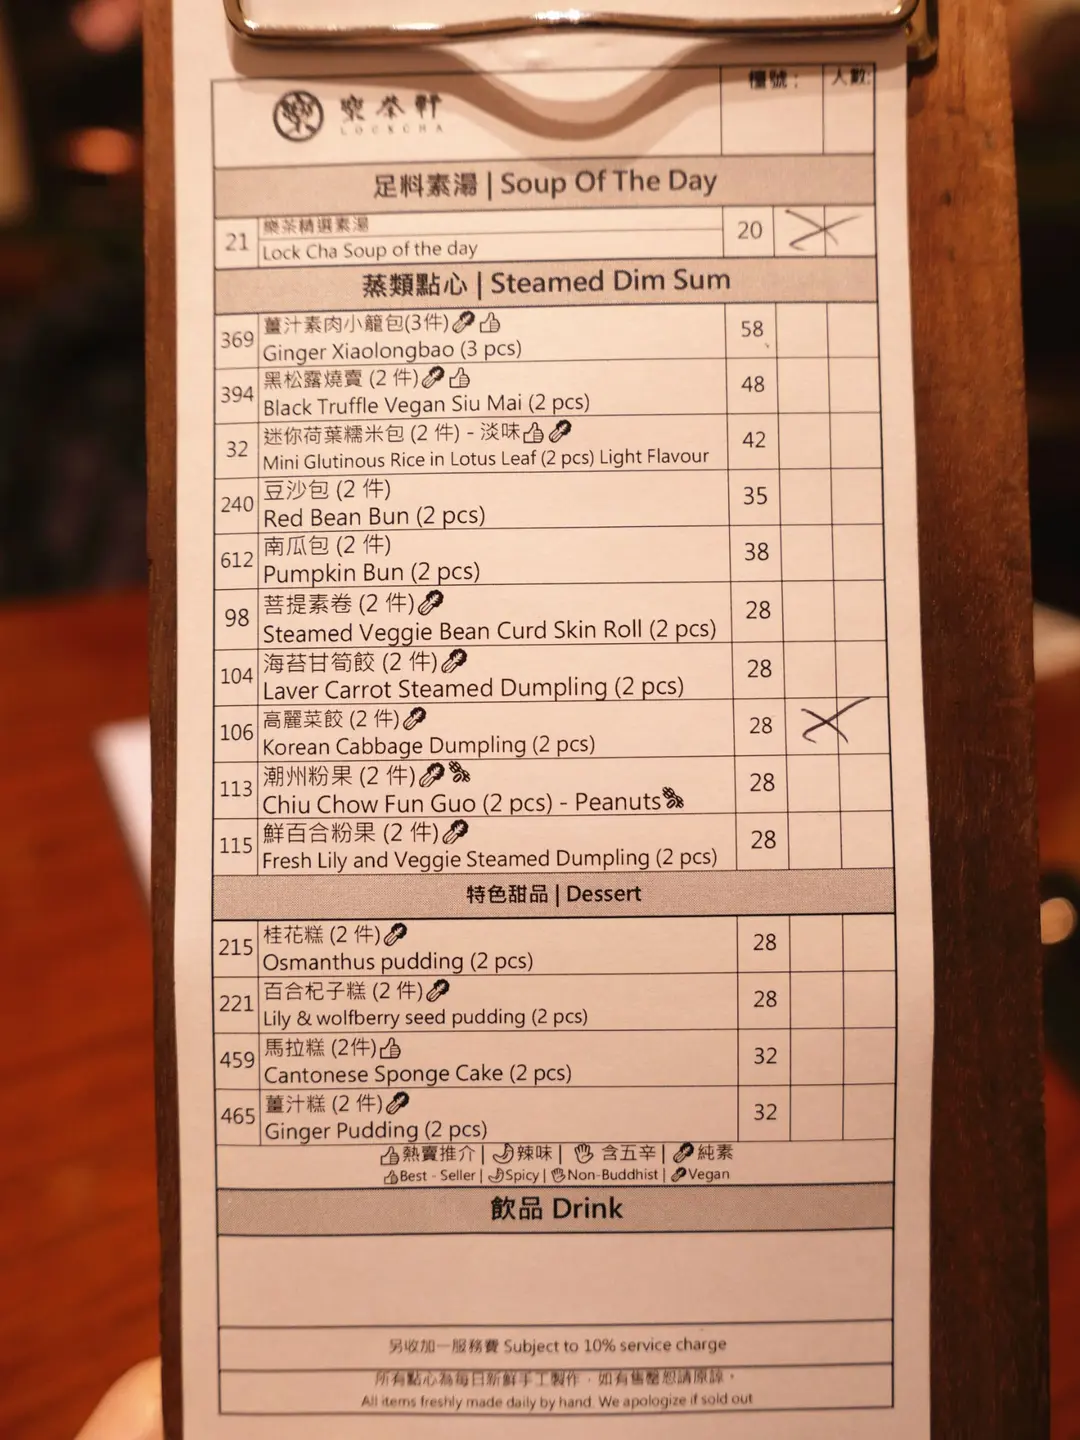 樂茶軒
LOCKCHA
檯號：
人數:
足料素湯 | Soup Of The Day
21
樂茶精選素湯
Lock Cha Soup of the day
20
蒸類點心 | Steamed Dim Sum
369
薑汁素肉小籠包(3件)
Ginger Xiaolongbao (3 pcs)
58
394
黑松露燒賣 (2 件)
Black Truffle Vegan Siu Mai (2 pcs)
48
32
迷你荷葉糯米包 (2 件) - 淡味
Mini Glutinous Rice in Lotus Leaf (2 pcs) Light Flavour
42
240
豆沙包 (2 件)
Red Bean Bun (2 pcs)
35
612
南瓜包 (2 件)
Pumpkin Bun (2 pcs)
38
98
菩提素卷 (2 件)
Steamed Veggie Bean Curd Skin Roll (2 pcs)
28
104
海苔甘筍餃 (2 件)
Laver Carrot Steamed Dumpling (2 pcs)
28
106
高麗菜餃 (2 件)
Korean Cabbage Dumpling (2 pcs)
28
113
潮州粉果 (2 件)
Chiu Chow Fun Guo (2 pcs) - Peanuts
28
115
鮮百合粉果 (2 件)
Fresh Lily and Veggie Steamed Dumpling (2 pcs)
28
特色甜品 | Dessert
215
桂花糕 (2 件)
Osmanthus pudding (2 pcs)
28
221
百合杞子糕 (2 件)
Lily & wolfberry seed pudding (2 pcs)
28
459
馬拉糕 (2件)
Cantonese Sponge Cake (2 pcs)
32
465
薑汁糕 (2 件)
Ginger Pudding (2 pcs)
32
熱賣推介 | 辣味 | 含五辛 | 純素
Best - Seller | Spicy | Non-Buddhist | Vegan
飲品 Drink
另收加一服務費 Subject to 10% service charge
所有點心為每日新鮮手工製作，如有售罄恕請原諒。
All items freshly made daily by hand. We apologize if sold out